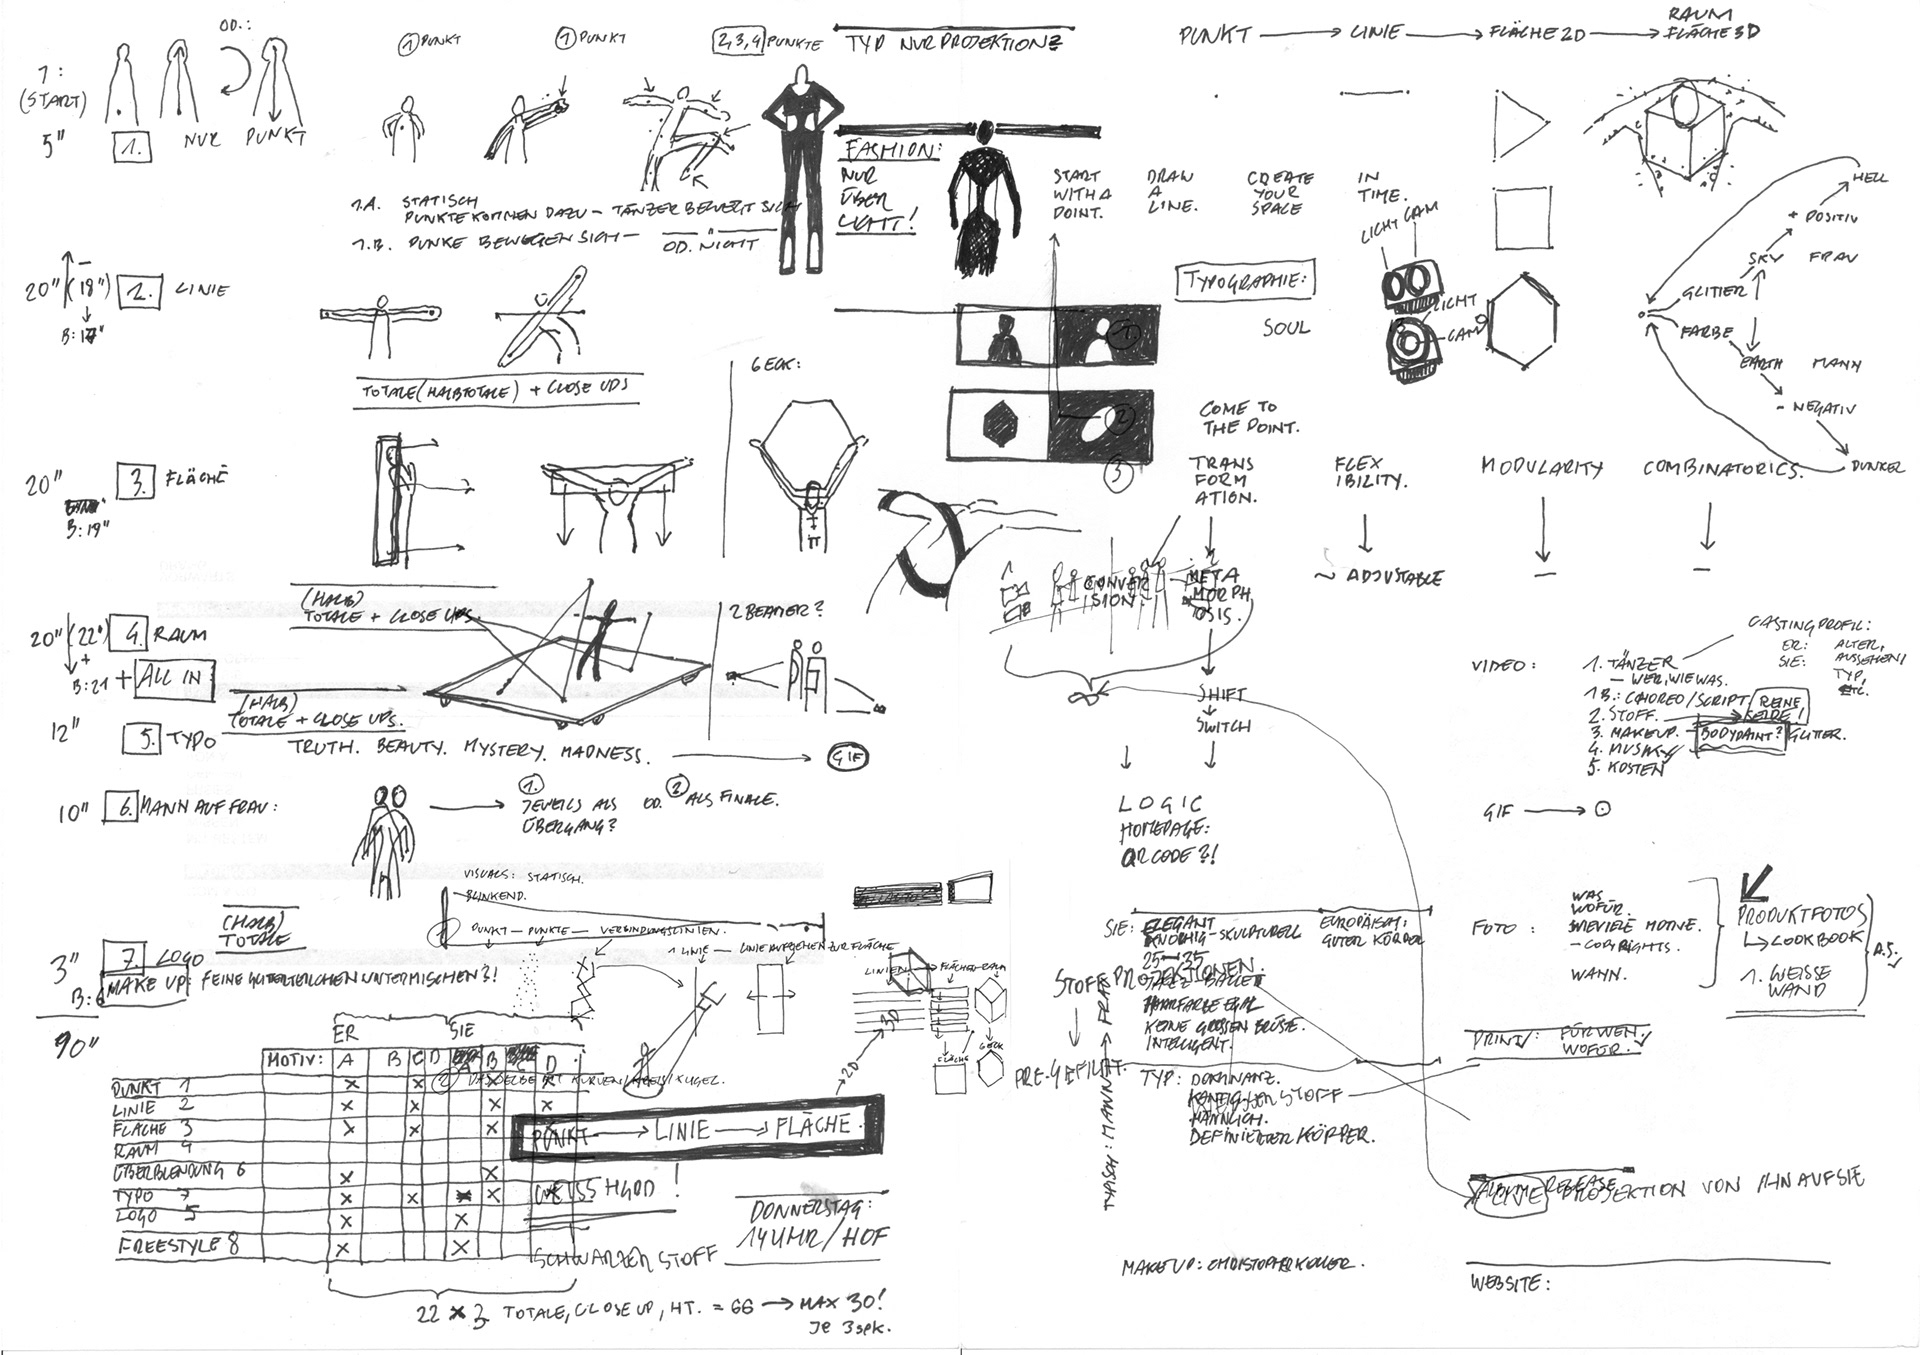 OD.:
1:
(START)
5"
1.
NUR PUNKT
1 PUNKT
1 PUNKT
2,3,4 PUNKTE
TYP NUR PROJEKTION?
1.A. STATISCH
PUNKTE KOMMEN DAZU – TÄNZER BEWEGT SICH
1.B. PUNKE BEWEGEN SICH – OD. NICHT
FASHION:
NUR
ÜBER
LICHT!
PUNKT → LINIE → FLÄCHE 2D → RAUM
FLÄCHE 3D
START
WITH A
POINT.
DRAW
A
LINE.
CREATE
YOUR
SPACE
IN
TIME.
LICHT CAM
LICHT
CAM
HELL
+ POSITIV
SKY FRAU
GLITTER
FARBE
EARTH MANN
- NEGATIV
DUNKEL
20" (18")
B: 17"
2. LINIE
TOTALE (HALBTOTALE) + CLOSE UPS
6 ECK:
TYPOGRAPHIE:
SOUL
1
2
3
COME TO
THE POINT.
TRANS
FORM
ATION.
FLEX
IBILITY.
MODULARITY
COMBINATORICS.
20"
B: 19"
3. FLÄCHE
(HALB)
TOTALE + CLOSE UPS.
CONVER
SION.
META
MORPH
OSIS.
~ ADJUSTABLE
–
–
SHIFT
SWITCH
20" (22")
+
B: 21
4. RAUM
+ ALL IN
2 BEAMER?
(HALB)
TOTALE + CLOSE UPS.
12"
5. TYPO
TRUTH. BEAUTY. MYSTERY. MADNESS. → GIF
10"
6. MANN AUF FRAU:
1. JEWEILS ALS
ÜBERGANG?
OD. 2 ALS FINALE.
CASTINGPROFIL:
ER: ALTER,
SIE: AUSSEHEN,
TYP,
ETC.
VIDEO:
1. TÄNZER
– WER, WIE WAS.
1B.: CHOREO/SCRIPT
2. STOFF. → REINE
SEIDE!
3. MAKEUP. – BODYPAINT? GLITTER.
4. MUSIK
5. KOSTEN
GIF →
LOGIC
HOMEPAGE:
QR CODE?!
FOTO:
WAS
WOFÜR
WIEVIELE MOTIVE.
– COPYRIGHTS.
WANN.
PRODUKTFOTOS
LOOKBOOK
1. WEISSE
WAND
PRINT: FÜR WEN.
WOFÜR.
VISUALS: STATISCH.
BLINKEND.
1
PUNKT – PUNKTE – VERBINDUNGSLINIEN.
1 LINIE – LINIE AUFGEHEN ZUR FLÄCHE
LINIEN → FLÄCHEN – RAUM
FLÄCHE
6ECK
2D → 3D
(HALB)
TOTALE
3"
B: 6
7. LOGO
MAKE UP: FEINE GLITTERTEILCHEN UNTERMISCHEN?!
90"
ER SIE
MOTIV: A B C D A B D
PUNKT 1 X X X
LINIE 2 X X X X
FLÄCHE 3 X X X
RAUM 4
ÜBERBLENDUNG 6 X X
TYPO 7 X X X
LOGO 5 X X
FREESTYLE 8 X X
2 DASSELBE MIT KURVEN/KREIS/KUGEL.
PUNKT → LINIE → FLÄCHE.
SCHWARZER STOFF
DONNERSTAG:
14 UHR/HOF
22 X 3 TOTALE, CLOSE UP, HT. = 66 → MAX 30!
JE 3 SEK.
SIE: ELEGANT
KNOCHIG – SKULPTURELL
25–35
JAZZ BALLETT
HAARFARBE EGAL
KEINE GROSSEN BRÜSTE.
INTELLIGENT.
EUROPÄISCH:
GUTER KÖRPER
STOFF PROJEKTIONEN
TYP: DOMINANZ.
MÄNNLICH.
DEFINIERTER KÖRPER.
MAKE UP: CHRISTOPHER KOLLER.
PROJEKTION VON IHN AUF SIE
WEBSITE: